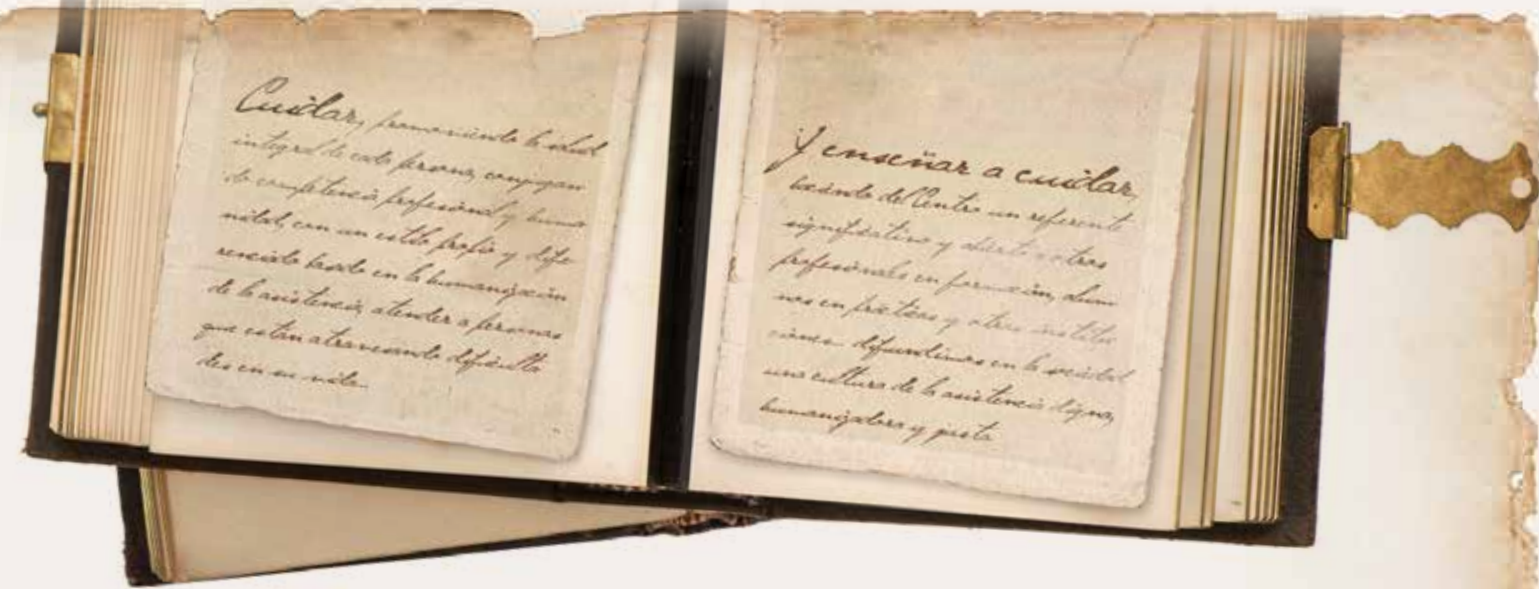 Cuidar, promoviendo la salud
integral de cada persona, conjugan
do competencia profesional y huma
nidad, con un estilo propio y dife
renciado basado en la humanización
de la asistencia, atender a personas
que están atravesando dificulta
des en su vida.
Y enseñar a cuidar,
haciendo del Centro un referente
significativo y abierto a otros
profesionales en formación, alum
nos en prácticas y otras institu
ciones. difundimos en la sociedad
una cultura de la asistencia digna,
humanizadora y justa